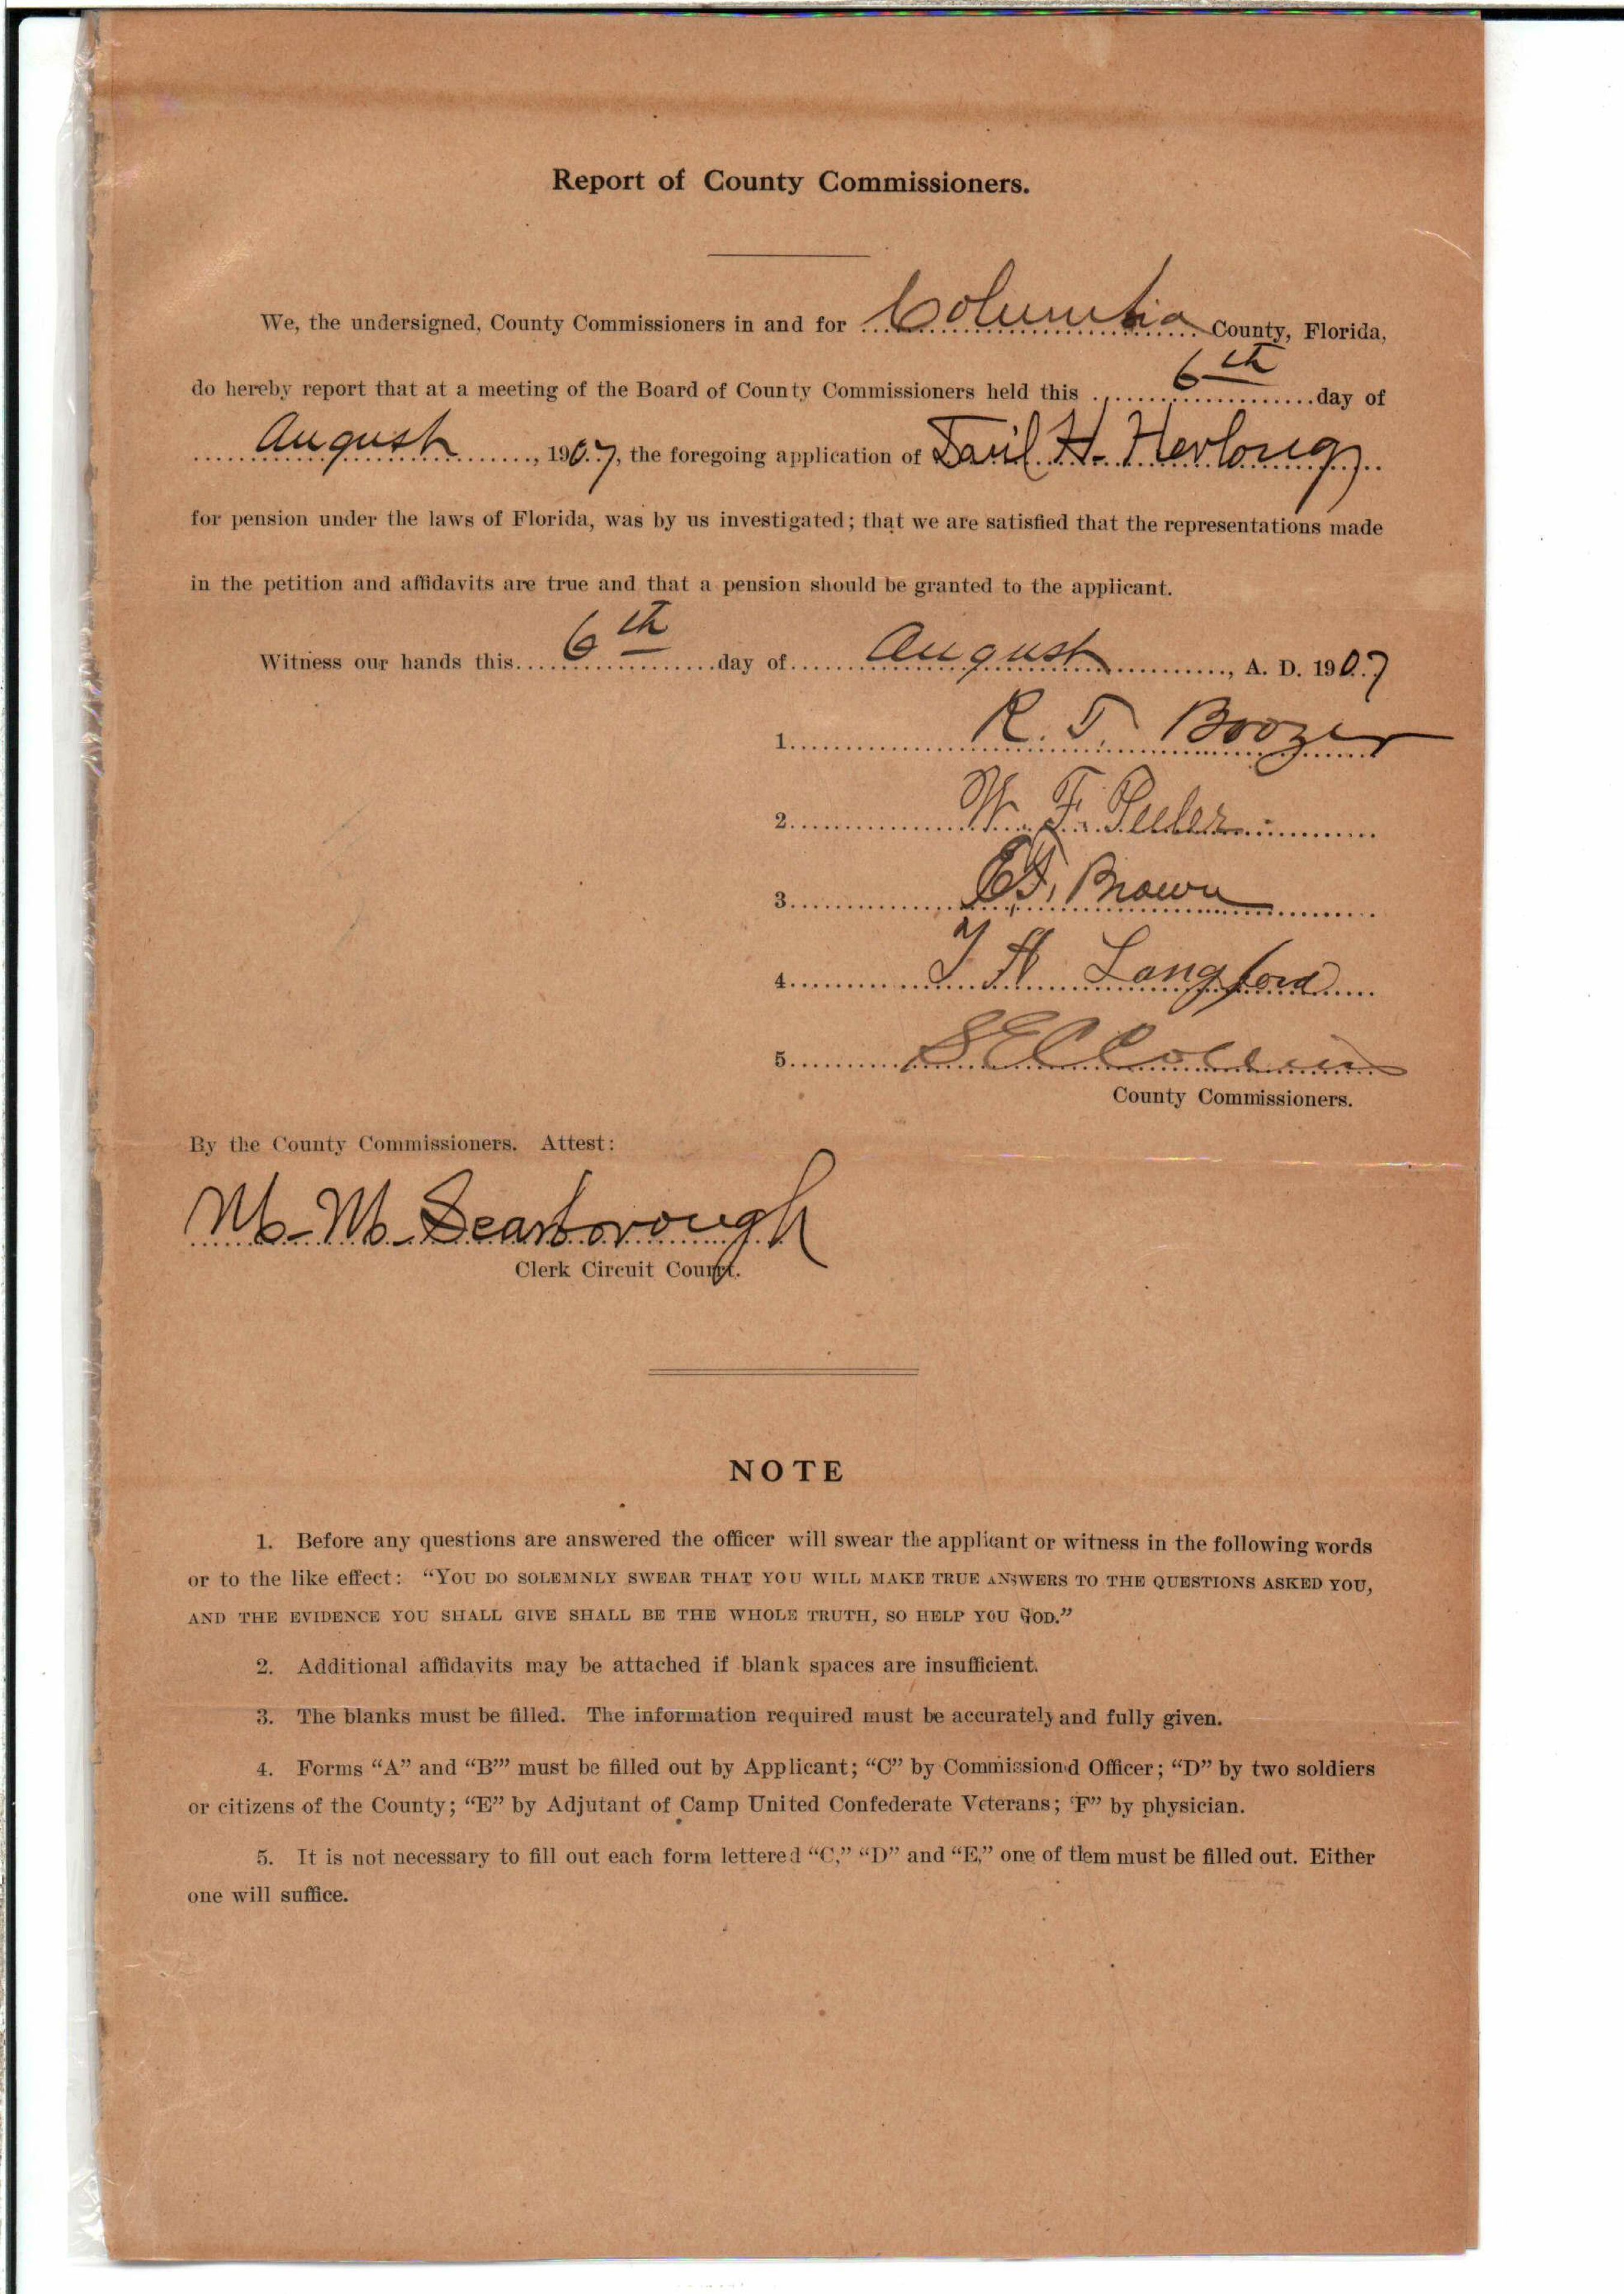 Report of County Commissioners.
We, the undersigned, County Commissioners in and for Columbia County, Florida,
do hereby report that at a meeting of the Board of County Commissioners held this 6th day of
August, 1907, the foregoing application of H. Herlong
for pension under the laws of Florida, was by us investigated; that we are satisfied that the representations made
in the petition and affidavits are true and that a pension should be granted to the applicant.
Witness our hands this 6th day of August, A. D. 1907
1. R. T. Boozer
2. W. F.
3. Brown
4. Langford
5. S E
County Commissioners.
By the County Commissioners. Attest:
M. M. Scarborough
Clerk Circuit Court.
NOTE
1. Before any questions are answered the officer will swear the applicant or witness in the following words
or to the like effect: “YOU DO SOLEMNLY SWEAR THAT YOU WILL MAKE TRUE ANSWERS TO THE QUESTIONS ASKED YOU,
AND THE EVIDENCE YOU SHALL GIVE SHALL BE THE WHOLE TRUTH, SO HELP YOU GOD.”
2. Additional affidavits may be attached if blank spaces are insufficient.
3. The blanks must be filled. The information required must be accurately and fully given.
4. Forms “A” and “B”’ must be filled out by Applicant; “C” by Commissiond Officer; “D” by two soldiers
or citizens of the County; “E” by Adjutant of Camp United Confederate Veterans; ‘F” by physician.
5. It is not necessary to fill out each form lettered “C,” “D” and “E,” one of them must be filled out. Either
one will suffice.